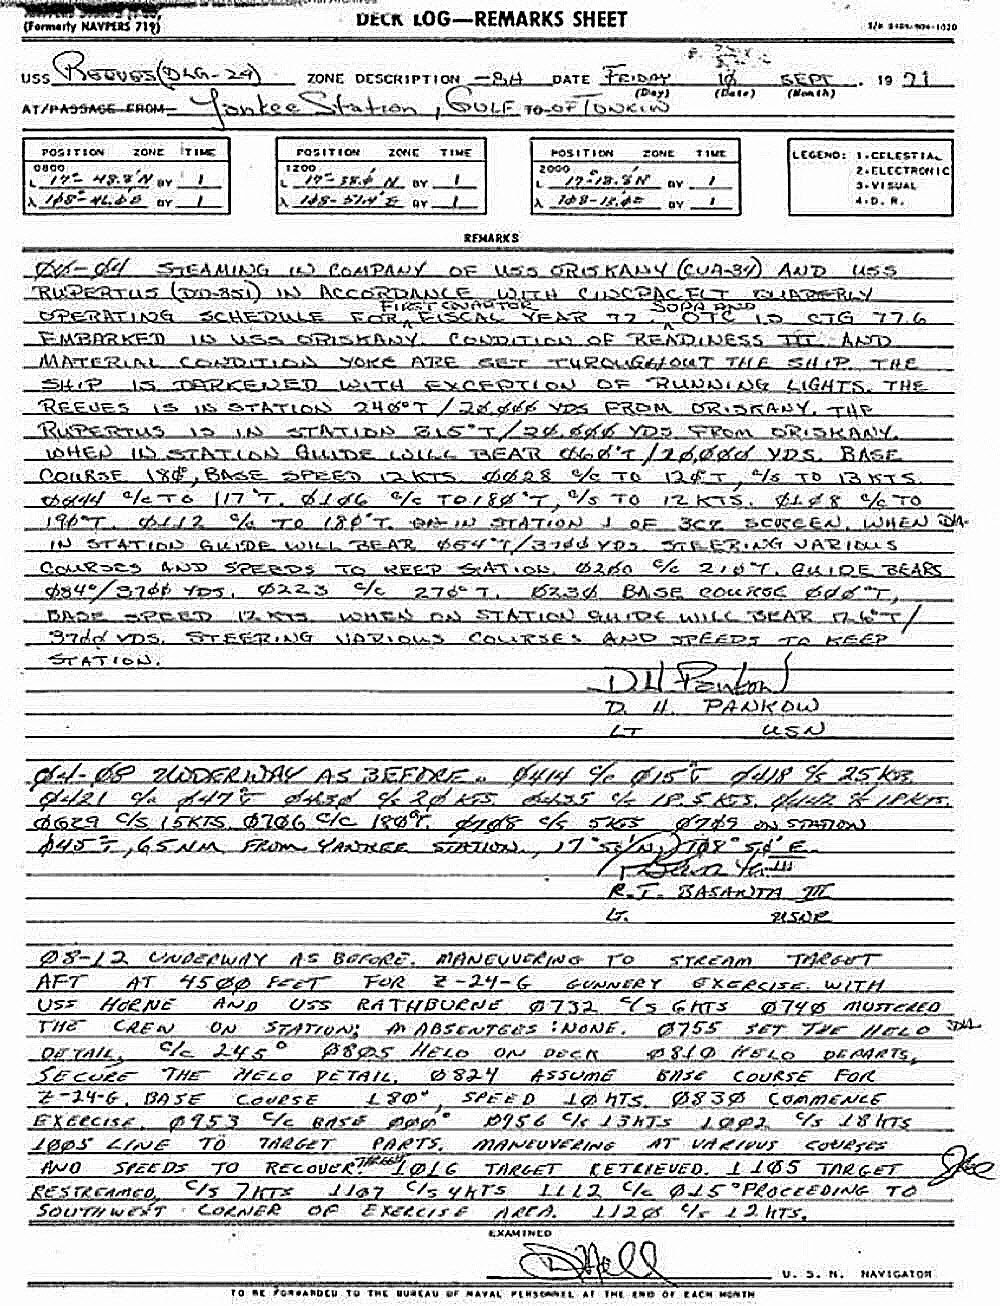 (Formerly NAVPERS 719)
DECK LOG—REMARKS SHEET
USS REEVES (DLG-24) ZONE DESCRIPTION -8H DATE FRIDAY 10 SEPT 19 71
(Day) (Date) (Month)
AT/PASSAGE FROM Yankee Station, GULF TO OF TONKIN
POSITION ZONE TIME
0800
L 17°-48.8'N BY 1
λ 108°-46.0'E BY 1
POSITION ZONE TIME
1200
L 17°-38.0'N BY 1
λ 108-51.4'E BY 1
POSITION ZONE TIME
2000
L 17°-18.8'N BY 1
λ 108-18.0'E BY 1
LEGEND: 1-CELESTIAL
2-ELECTRONIC
3-VISUAL
4-D. R.
REMARKS
00-04 STEAMING IN COMPANY OF USS ORISKANY (CVA-34) AND USS
RUPERTUS (DD-851) IN ACCORDANCE WITH CINCPACFLT QUARTERLY
OPERATING SCHEDULE FOR FIRST QUARTER FISCAL YEAR 72. SOPA AND OTC IS CTG 77.6
EMBARKED IN USS ORISKANY. CONDITION OF READINESS III AND
MATERIAL CONDITION YOKE ARE SET THROUGHOUT THE SHIP. THE
SHIP IS DARKENED WITH EXCEPTION OF RUNNING LIGHTS. THE
REEVES IS IN STATION 240°T/20,000 YDS FROM ORISKANY. THE
RUPERTUS IS IN STATION 315°T/20,000 YDS FROM ORISKANY.
WHEN IN STATION GUIDE WILL BEAR 060°T/20,000 YDS. BASE
COURSE 180°, BASE SPEED 12 KTS. 0028 C/C TO 120°T, C/S TO 13 KTS.
0044 C/C TO 117°T. 0106 C/C TO 180°T, C/S TO 12 KTS. 0108 C/C TO
190°T. 0112 C/C TO 180°T. IN STATION 1 OF SCREEN. WHEN
IN STATION GUIDE WILL BEAR 054°T/3700 YDS. STEERING VARIOUS
COURSES AND SPEEDS TO KEEP STATION. 0200 C/C 210°T. GUIDE BEARS
084°/3700 YDS. 0223 C/C 270°T. 0230 BASE COURSE 000°T,
BASE SPEED 12 KTS. WHEN ON STATION GUIDE WILL BEAR
3700 YDS. STEERING VARIOUS COURSES AND SPEEDS TO KEEP
STATION.
D H Pankow
D. H. PANKOW
LT USN
04-08 UNDERWAY AS BEFORE. 0414 C/C 015°T 0418 C/S 25 KTS
0421 C/C 047°T 0430 C/S 20 KTS. 0435 C/S 18.5 KTS. 0442 C/S 18 KTS.
0629 C/S 15 KTS. 0706 C/C 180°T. 0708 C/S 5 KTS 0709 ON STATION
045°T, 65 NM FROM YANKEE STATION, 17°50'N, 108°50'E.
R. I. BASARTA III
LT. USNR
08-12 UNDERWAY AS BEFORE. MANEUVERING TO STREAM TARGET
AFT AT 4500 FEET FOR Z-24-G GUNNERY EXERCISE WITH
USS HORNE AND USS RATHBURNE 0732 C/S 6 KTS 0740 MUSTERED
THE CREW ON STATION; ABSENTEES: NONE. 0755 SET THE HELO
DETAIL, C/C 245° 0805 HELO ON DECK 0810 HELO DEPARTS,
SECURE THE HELO DETAIL. 0824 ASSUME BASE COURSE FOR
Z-24-G. BASE COURSE 180°, SPEED 10 KTS. 0830 COMMENCE
EXERCISE. 0953 C/C BASE 000° 0956 C/S 13 KTS 1002 C/S 18 KTS
1005 LINE TO TARGET PARTS. MANEUVERING AT VARIOUS COURSES
AND SPEEDS TO RECOVER TARGET 1016 TARGET RETRIEVED. 1105 TARGET
RESTREAMED, C/S 7 KTS 1107 C/S 4 KTS 1112 C/C 015° PROCEEDING TO
SOUTHWEST CORNER OF EXERCISE AREA. 1120 C/S 12 KTS.
EXAMINED
U. S. N. NAVIGATOR
TO BE FORWARDED TO THE BUREAU OF NAVAL PERSONNEL AT THE END OF EACH MONTH